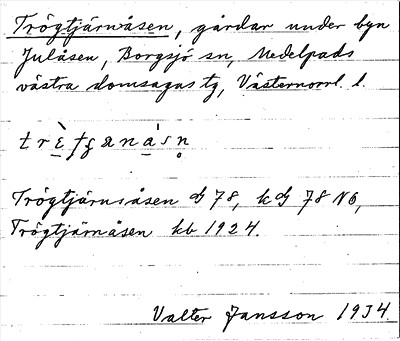 Trögtjärnåsen, gårdar under byn
Julåsen, Borgsjö sn, Medelpads
västra domsagas tg, Västernorrl. l.
Trögtjärnsåsen dj 78, kdj 78 N6,
Trögtjärnåsen kb 1924.
Valter Jansson 1934.